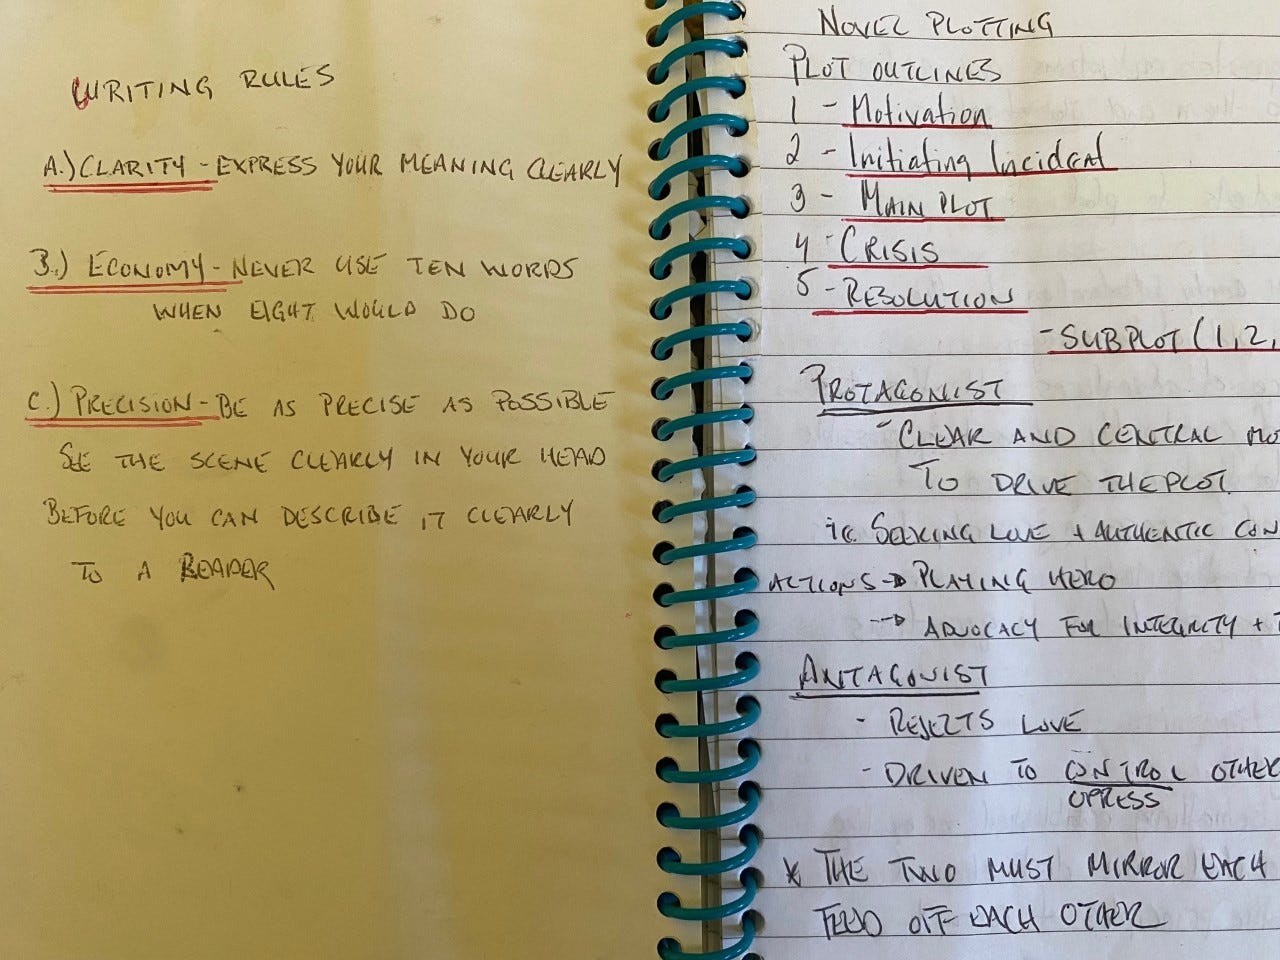 WRITING RULES
A.) CLARITY - EXPRESS YOUR MEANING CLEARLY
B.) ECONOMY - NEVER USE TEN WORDS
WHEN EIGHT WOULD DO
C.) PRECISION - BE AS PRECISE AS POSSIBLE
SEE THE SCENE CLEARLY IN YOUR HEAD
BEFORE YOU CAN DESCRIBE IT CLEARLY
TO A READER
NOVEL PLOTTING
PLOT OUTLINES
1 - Motivation
2 - Initiating Incident
3 - MAIN PLOT
4 - CRISIS
5 - RESOLUTION
- SUBPLOT (1, 2,
PROTAGONIST
- CLEAR AND CENTRAL MO
TO DRIVE THE PLOT
ie. SEEKING LOVE + AUTHENTIC CON
ACTIONS → PLAYING HERO
--→ ADVOCACY FOR INTEGRITY +
ANTAGONIST
- REJECTS LOVE
- DRIVEN TO CONTROL OTHE
OPRESS
* THE TWO MUST MIRROR EACH
FEED OFF EACH OTHER